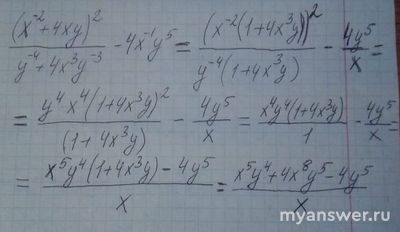 (x⁻²+4xy)²/(y⁻⁴+4x³y⁻³) - 4x⁻¹y⁵ = (x⁻²(1+4x³y))²/(y⁻⁴(1+4x³y)) - 4y⁵/x =
= y⁴x⁴(1+4x³y)²/(1+4x³y) - 4y⁵/x = x⁴y⁴(1+4x³y)/1 - 4y⁵/x =
= (x⁵y⁴(1+4x³y) - 4y⁵)/x = (x⁵y⁴+4x⁸y⁵-4y⁵)/x
myanswer.ru